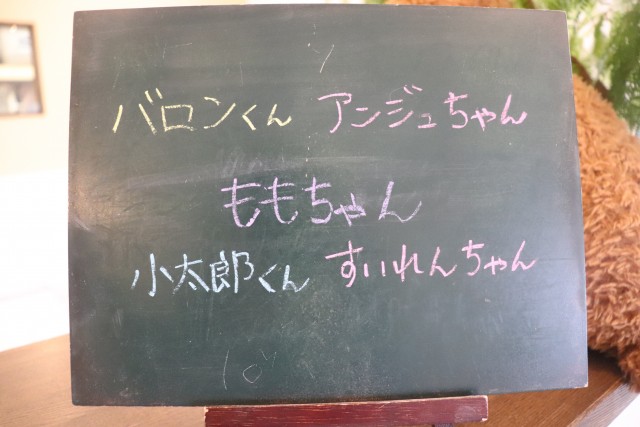 バロンくん アンジュちゃん
ももちゃん
小太郎くん すいれんちゃん